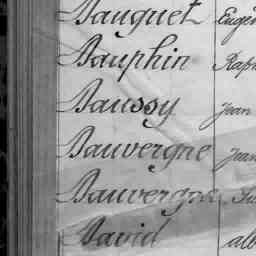 Dauguet Eugè
Dauphin Raph
Daussy Jean
Dauvergne Jean
Dauvergne
David alb